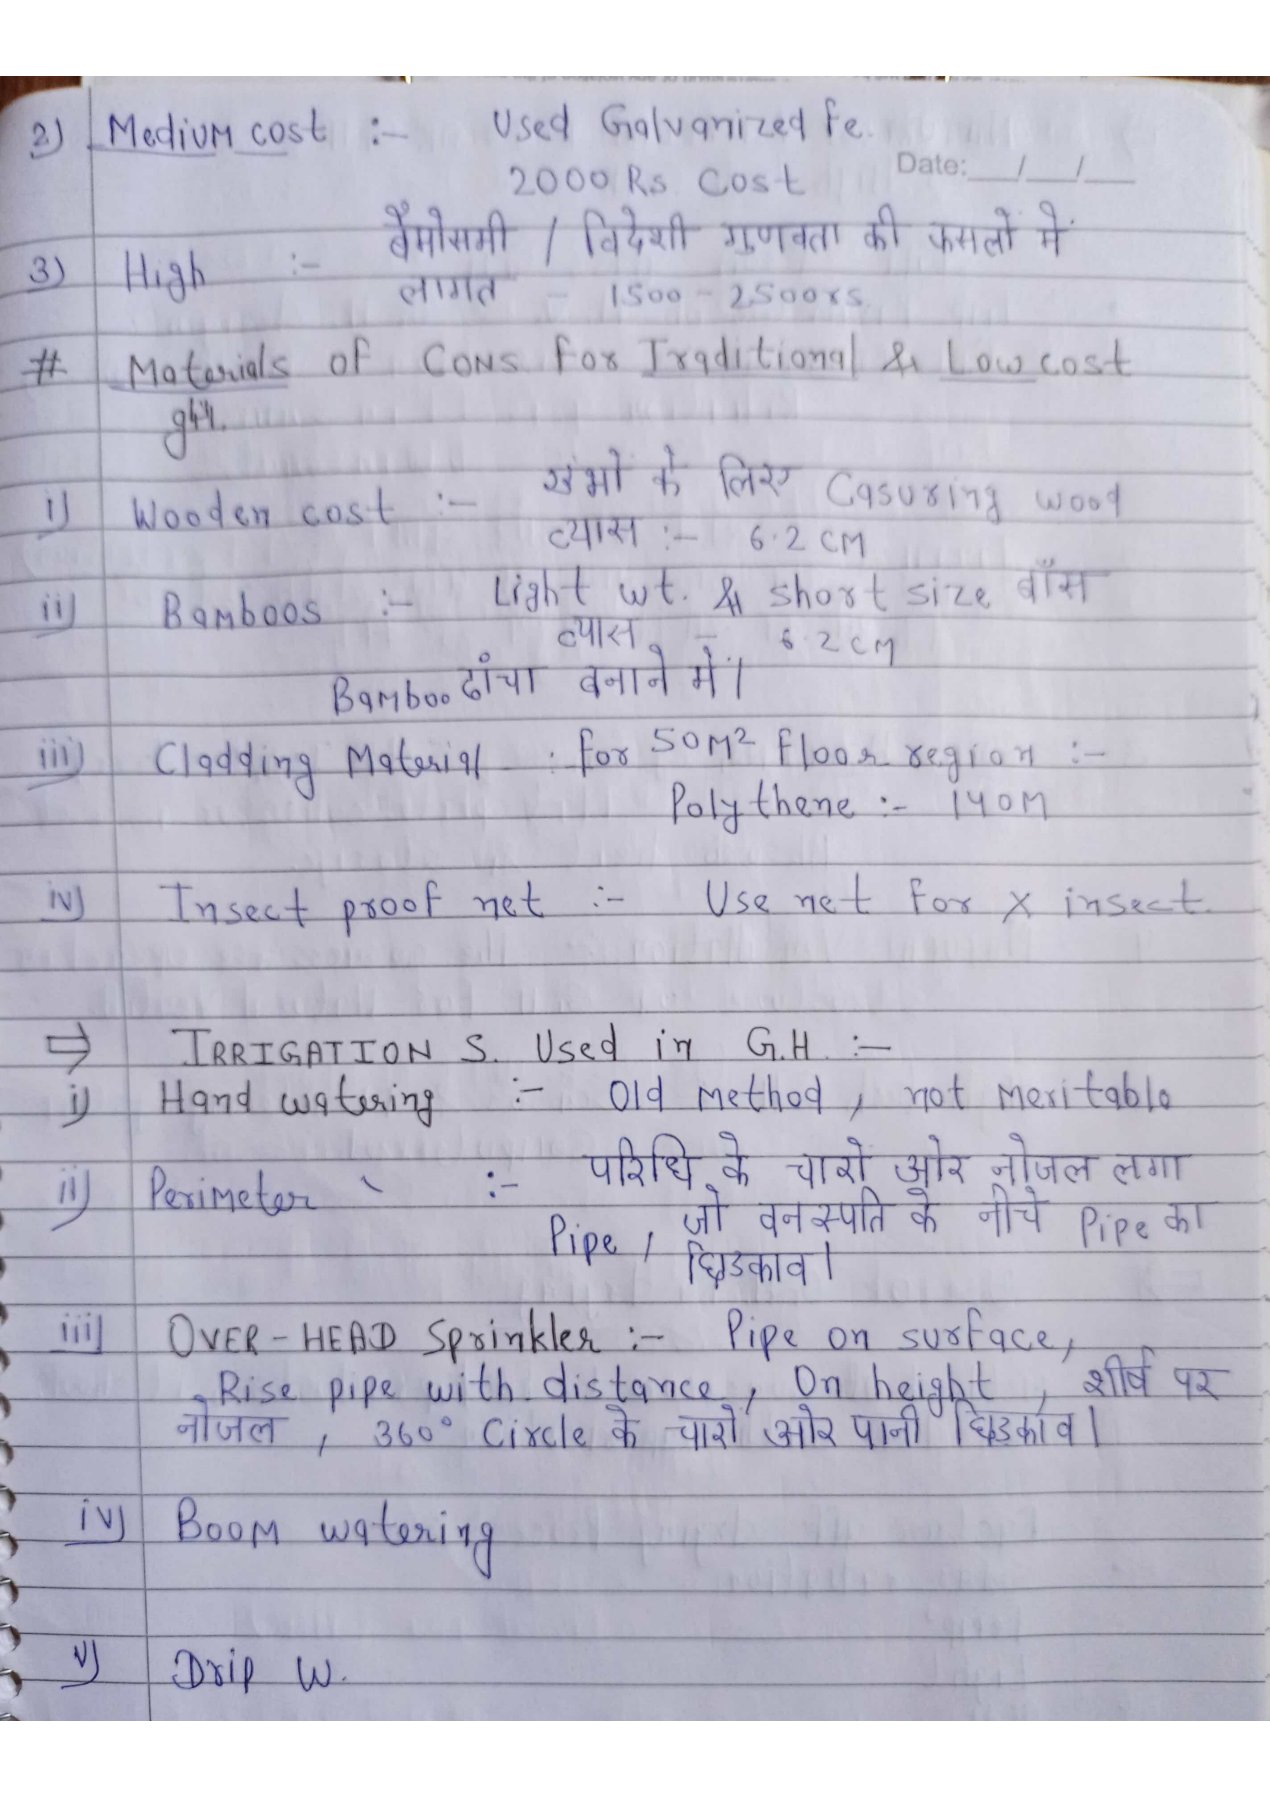 2) Medium cost :- Used Galvanized Fe.
Date:___/___/___
2000 Rs Cost
बैमोसमी / विदेशी गुणवता की फसलों में
3) High :-
लागत - 1500-2500rs.
# Materials of Cons for Traditional & Low cost
i) Wooden cost :- खंभों के लिए Casuring wood
व्यास :- 6.2 CM
ii) Bamboos :- Light wt. & short size बाँस
व्यास - 6.2 CM
Bamboo ढांचा बनाने में।
iii) Cladding Material . for 50M² floor region :-
Polythene :- 140M
iv) Insect proof net :- Use net for X insect.
⇒ IRRIGATION S. Used in G.H :-
i) Hand watering :- Old Method, not Meritable
ii) Perimeter :- परिधि के चारो ओर नोजल लगा
Pipe, जो वनस्पति के नीचे Pipe का
छिडकाव।
iii) OVER-HEAD Sprinkler :- Pipe on surface,
Rise pipe with distance, On height, शीर्ष पर
नोजल, 360° Circle के चारो ओर पानी छिडकाव।
iv) Boom watering
v) Drip W.